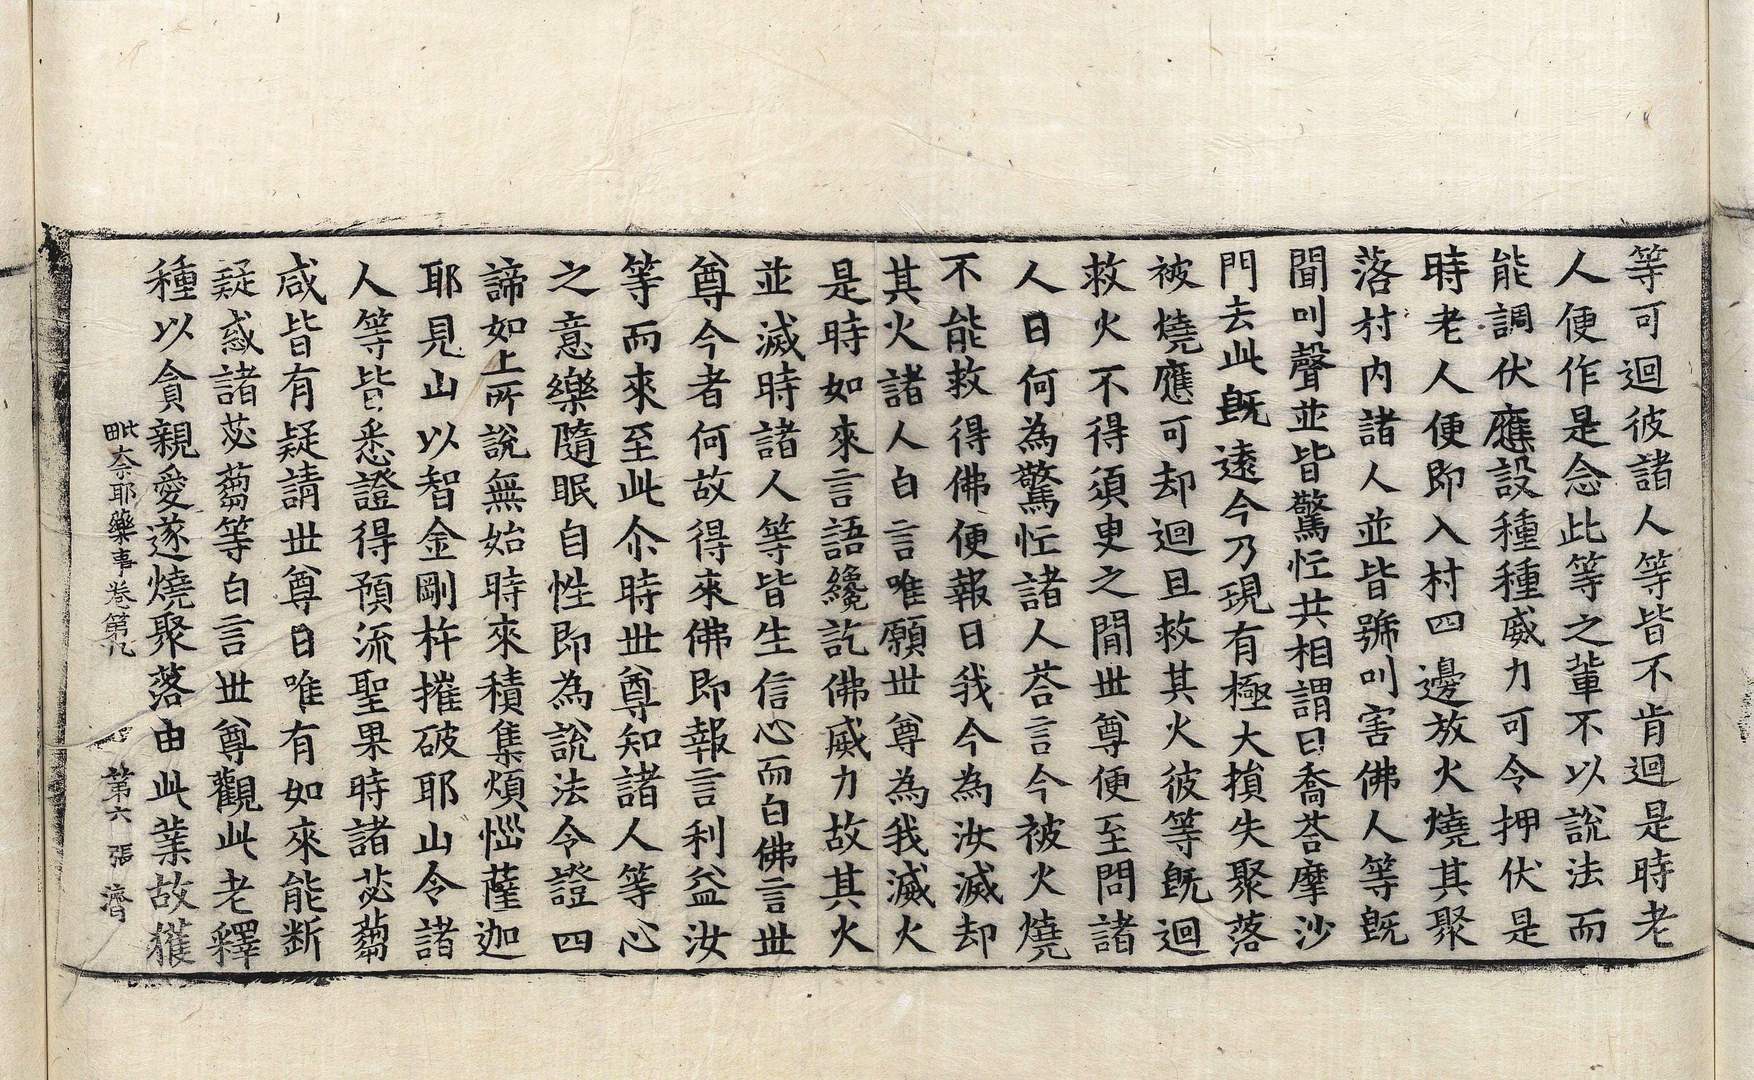 等可迴彼諸人等皆不肯迴是時老
人便作是念此等之輩不以說法而
能調伏應設種種威力可令押伏是
時老人便即入村四邊放火燒其聚
落村內諸人並皆號叫害佛人等既
聞叫聲並皆驚怪共相謂曰喬荅摩沙
門去此既遠今乃現有極大損失聚落
被燒應可却迴且救其火彼等既迴
救火不得須臾之閒世尊便至問諸
人曰何為驚怪諸人荅言今被火燒
不能救得佛便報曰我今為汝滅却
其火諸人白言唯願世尊為我滅火
是時如來言語纔訖佛威力故其火
並滅時諸人等皆生信心而白佛言世
尊今者何故得來佛即報言利益汝
等而來至此尒時世尊知諸人等心
之意樂隨眠自性即為說法令證四
諦如上所說無始時來積集煩惱薩迦
耶見山以智金剛杵摧破耶山令諸
人等皆悉證得預流聖果時諸苾蒭
咸皆有疑請世尊曰唯有如來能断
疑惑諸苾蒭等白言世尊觀此老釋
種以貪親愛遂燒聚落由此業故獲
毗奈耶藥事卷第九 第六張 濟